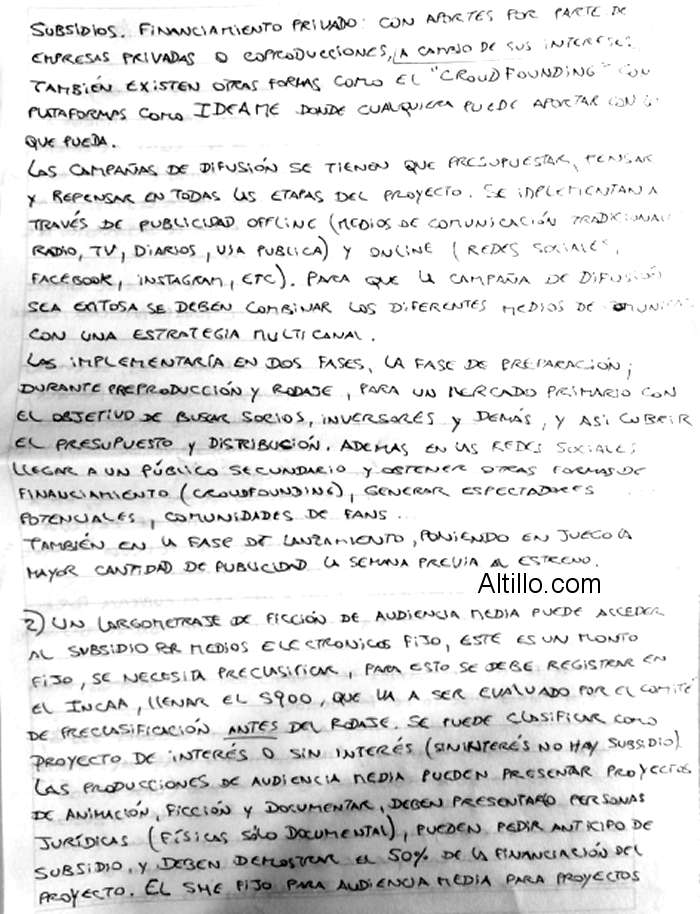 SUBSIDIOS. FINANCIAMIENTO PRIVADO: CON APORTES POR PARTE DE
EMPRESAS PRIVADAS O COPRODUCCIONES, A CAMBIO DE SUS INTERESES
TAMBIÉN EXISTEN OTRAS FORMAS COMO EL "CROUDFOUNDING" CON
PLATAFORMAS COMO IDEAME DONDE CUALQUIERA PUEDE APORTAR CON LO
QUE PUEDA.
LAS CAMPAÑAS DE DIFUSIÓN SE TIENEN QUE PRESUPUESTAR, PENSAR
Y REPENSAR EN TODAS LAS ETAPAS DEL PROYECTO. SE IMPLEMENTAN A
TRAVÉS DE PUBLICIDAD OFFLINE (MEDIOS DE COMUNICACIÓN TRADICIONAL
RADIO, TV, DIARIOS, VIA PUBLICA) Y ONLINE (REDES SOCIALES,
FACEBOOK, INSTAGRAM, ETC). PARA QUE LA CAMPAÑA DE DIFUSIÓN
SEA EXITOSA SE DEBEN COMBINAR LOS DIFERENTES MEDIOS DE
CON UNA ESTRATEGIA MULTICANAL.
LAS IMPLEMENTARÍA EN DOS FASES, LA FASE DE PREPARACIÓN;
DURANTE PREPRODUCCIÓN Y RODAJE, PARA UN MERCADO PRIMARIO CON
EL OBJETIVO DE BUSCAR SOCIOS, INVERSORES Y DEMÁS, Y ASI CUBRIR
EL PRESUPUESTO Y DISTRIBUCIÓN. ADEMAS EN LAS REDES SOCIALES
LLEGAR A UN PÚBLICO SECUNDARIO Y OBTENER OTRAS FORMAS DE
FINANCIAMIENTO (CROWDFOUNDING), GENERAR ESPECTADORES
POTENCIALES, COMUNIDADES DE FANS...
TAMBIÉN EN LA FASE DE LANZAMIENTO, PONIENDO EN JUEGO LA
MAYOR CANTIDAD DE PUBLICIDAD LA SEMANA PREVIA AL ESTRENO.
Altillo.com
2) UN LARGOMETRAJE DE FICCIÓN DE AUDIENCIA MEDIA PUEDE ACCEDER
AL SUBSIDIO POR MEDIOS ELECTRONICOS FIJO, ESTE ES UN MONTO
FIJO, SE NECESITA PRECLASIFICAR, PARA ESTO SE DEBE REGISTRAR EN
EL INCAA, LLENAR EL S900, QUE VA A SER EVALUADO POR EL COMITÉ
DE PRECLASIFICACIÓN ANTES DEL RODAJE. SE PUEDE CLASIFICAR COMO
PROYECTO DE INTERÉS O SIN INTERÉS (SIN INTERÉS NO HAY SUBSIDIO)
LAS PRODUCCIONES DE AUDIENCIA MEDIA PUEDEN PRESENTAR PROYECTOS
DE ANIMACIÓN, FICCIÓN Y DOCUMENTAR, DEBEN PRESENTARLO PERSONAS
JURÍDICAS (FÍSICAS SÓLO DOCUMENTAL), PUEDEN PEDIR ANTICIPO DE
SUBSIDIO, Y DEBEN DEMOSTRAR EL 50% DE LA FINANCIACIÓN DEL
PROYECTO. EL SME FIJO PARA AUDIENCIA MEDIA PARA PROYECTOS